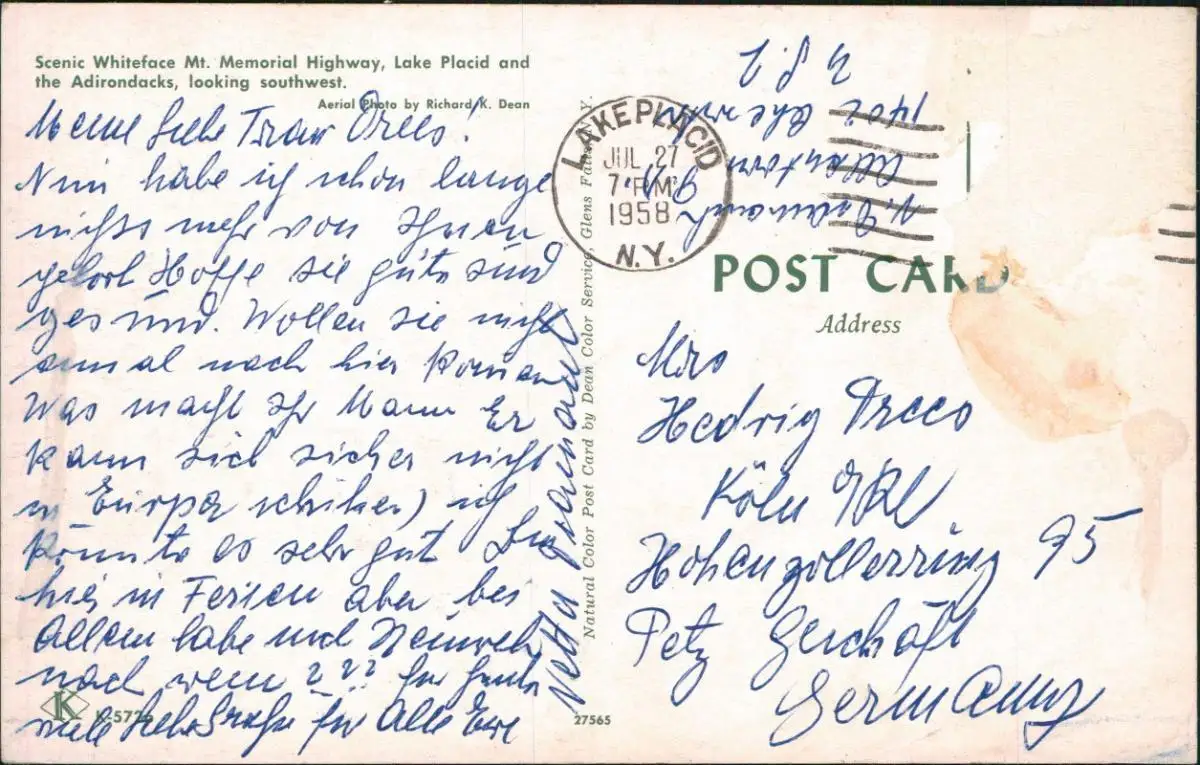 Scenic Whiteface Mt. Memorial Highway, Lake Placid and
the Adirondacks, looking southwest.
Aerial Photo by Richard K. Dean
Meine liebe Frau Drees!
Nun habe ich schon lange
nichts mehr von Ihnen
gehört Hoffe sie guts sind
gesund. Wollen sie nicht
einmal nach hier
Was macht Ihr Mann Er
kann sich sicher nicht
in Europa ich
könnte es sehr gut
hier in Ferien aber bei
Allem habe und Heimweh
nach wem ? ? ? für heute
viele für Alle Ihre
Netta
K
K-5776
Natural Color Post Card by Dean Color Service, Glens Falls, N.Y.
27565
LAKE PLACID
JUL 27
7 PM
1958
N.Y.
1402
Allentown
POST CARD
Address
Mrs
Hedwig Drees
Köln
Hohenzollernring 95
Petz Geschäft
Germany